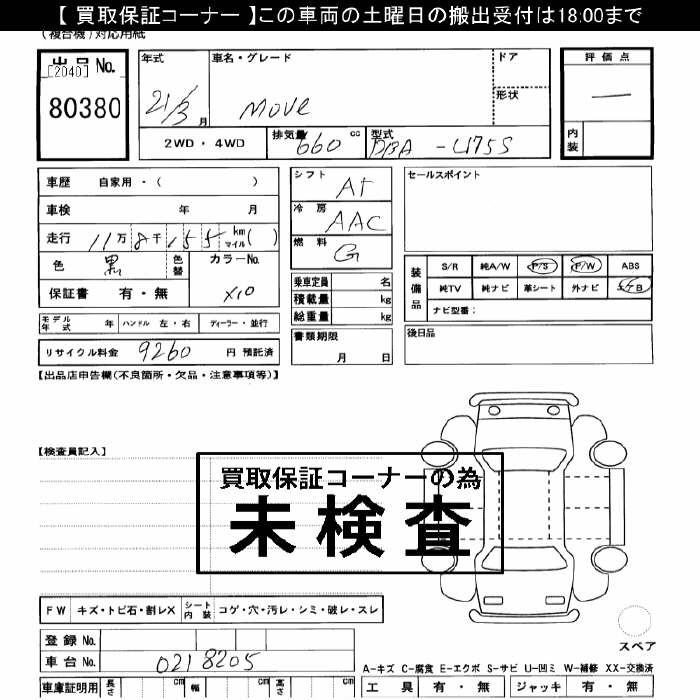 【 買取保証コーナー 】この車両の土曜日の搬出受付は18:00まで
(複合機)対応用紙
出品 No.
[2040]
80380
年式
21/3 月
車名・グレード
MOVE
ドア
形状
2WD ・ 4WD
排気量 660 cc
型式 DBA -L175S
評価点
―
内装
車歴 自家用・( )
車検 年 月
走行 11万 8千 1 5 5 km マイル ( )
色 黒 色替
カラーNo.
X10
保証書 有・無
シフト AT
冷房 AAC
燃料 G
乗車定員 名
積載量 kg
総重量 kg
セールスポイント
装備品
S/R 純A/W P/S P/W ABS
純TV 純ナビ 革シート 外ナビ エアB
ナビ型番:
モデル年式 年 ハンドル 左・右 ディーラー・並行
リサイクル料金 9260 円 預託済
書類期限
月 日
後日品
【出品店申告欄(不良箇所・欠品・注意事項等)】
【検査員記入】
買取保証コーナーの為
未検査
FW キズ・トビ石・割レX シート内装 コゲ・穴・汚レ・シミ・破レ・スレ
スペア
登録 No.
車台 No. 0218205
A-キズ C-腐食 E-エクボ S-サビ U-凹ミ W-補修 XX-交換済
車庫証明用 長さ cm 幅 cm 高さ cm
工具 有・無 ジャッキ 有・無